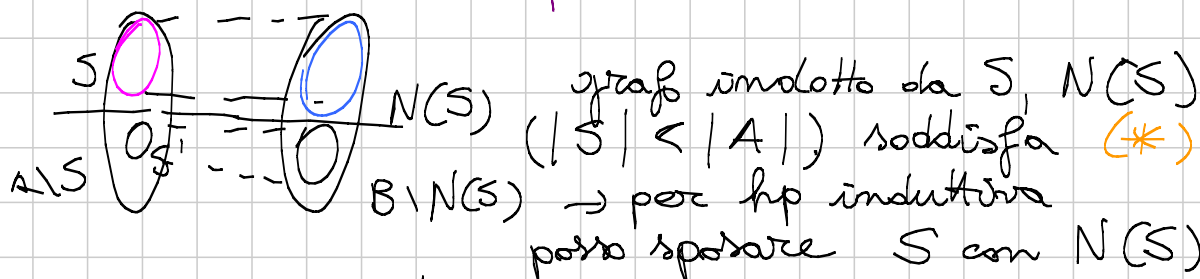 S
N(S)
S'
A\S
B\N(S)
grafo indotto da S, N(S)
(|S| < |A|) soddisfa (*)
→ per hp induttiva
posso sposare S con N(S)